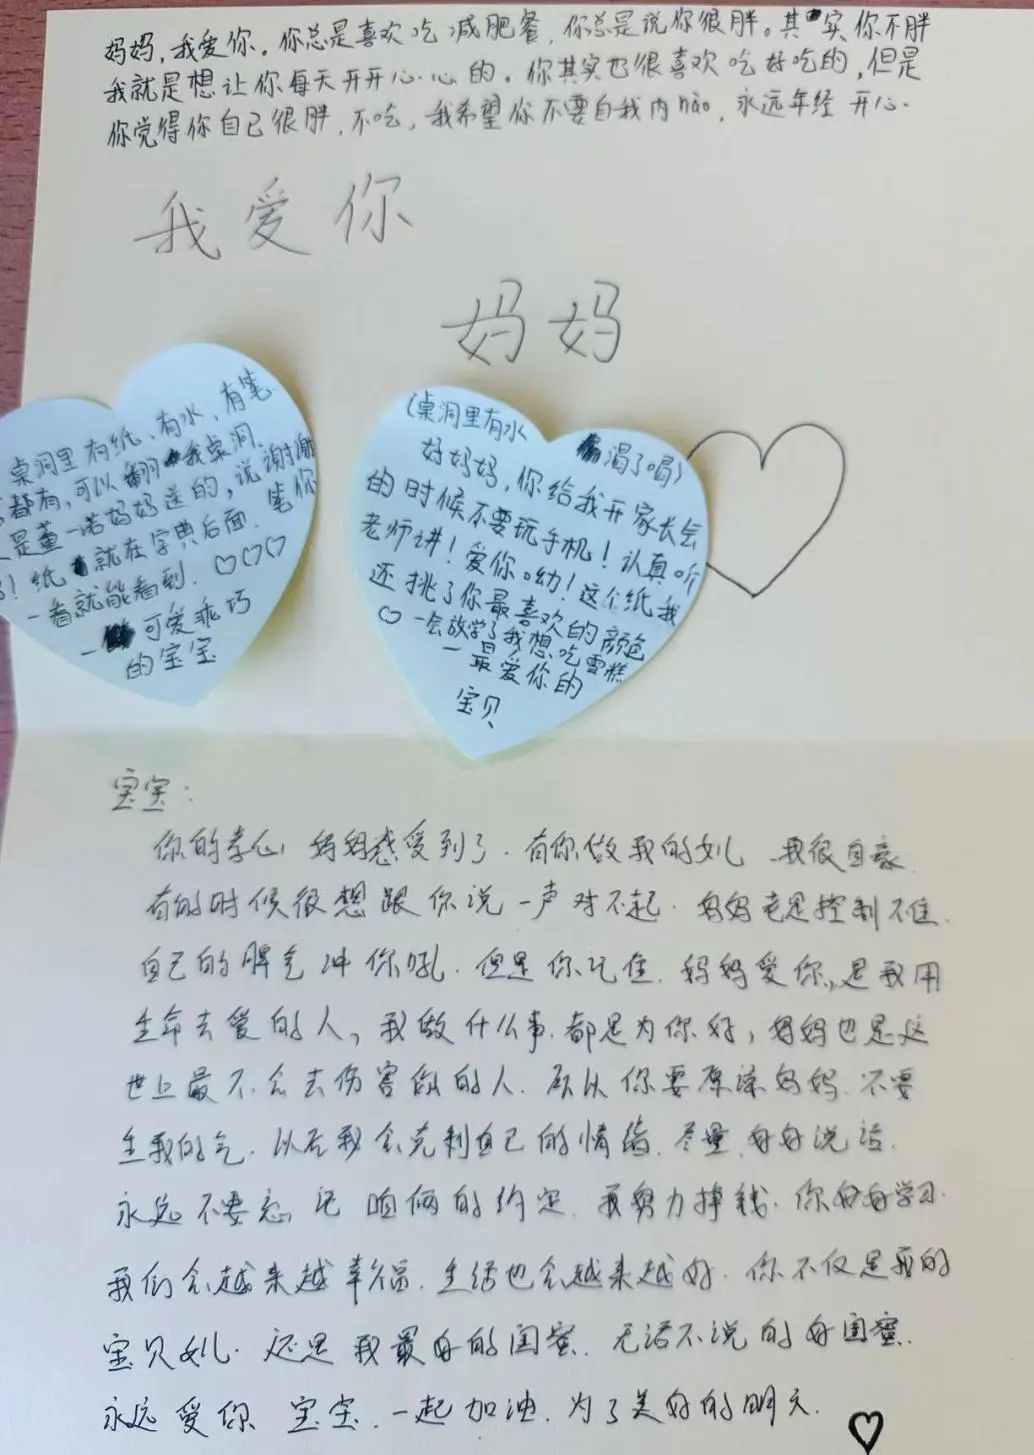 妈妈,我爱你。你总是喜欢吃减肥餐,你总是说你很胖。其实你不胖
我就是想让你每天开开心心的。你其实也很喜欢吃好吃的,但是
你觉得你自己很胖,不吃,我希望你不要自我内não,永远年经开心.
我爱你
妈妈
桌洞里有纸、有水、有笔.
都有,可以翻我桌洞.
是董一诺妈妈送的,说谢谢
!纸就在字典后面.笔你
一看就能看到.♡♡♡
—可爱乖巧
的宝宝
(桌洞里有水
渴了喝)
好妈妈,你给我开家长会
的时候不要玩手机!认真听
老师讲!爱你呦!这个纸我
还挑了你最喜欢的颜色
♡一会放学了我想吃雪糕
—最爱你的
宝贝
宝宝:
你的孝心妈妈感受到了.有你做我的女儿 我很自豪.
有的时候很想跟你说一声对不起.妈妈老是控制不住.
自己的脾气冲你吼.但是你记住.妈妈爱你,,是我用
生命去爱的人,我做什么事.都是为你好,妈妈也是这
世上最不会去伤害你的人.所以你要原谅妈妈.不要
生我的气.以后我会克制自己的情绪.尽量好好说话.
永远不要忘记咱俩的约定.我努力挣钱.你好好学习.
我们会越来越幸福.生活也会越来越好.你不仅是我的
宝贝女儿.还是我最好的闺蜜.无话不说的好闺蜜.
永远爱你 宝宝.一起加油.为了美好的明天.♡